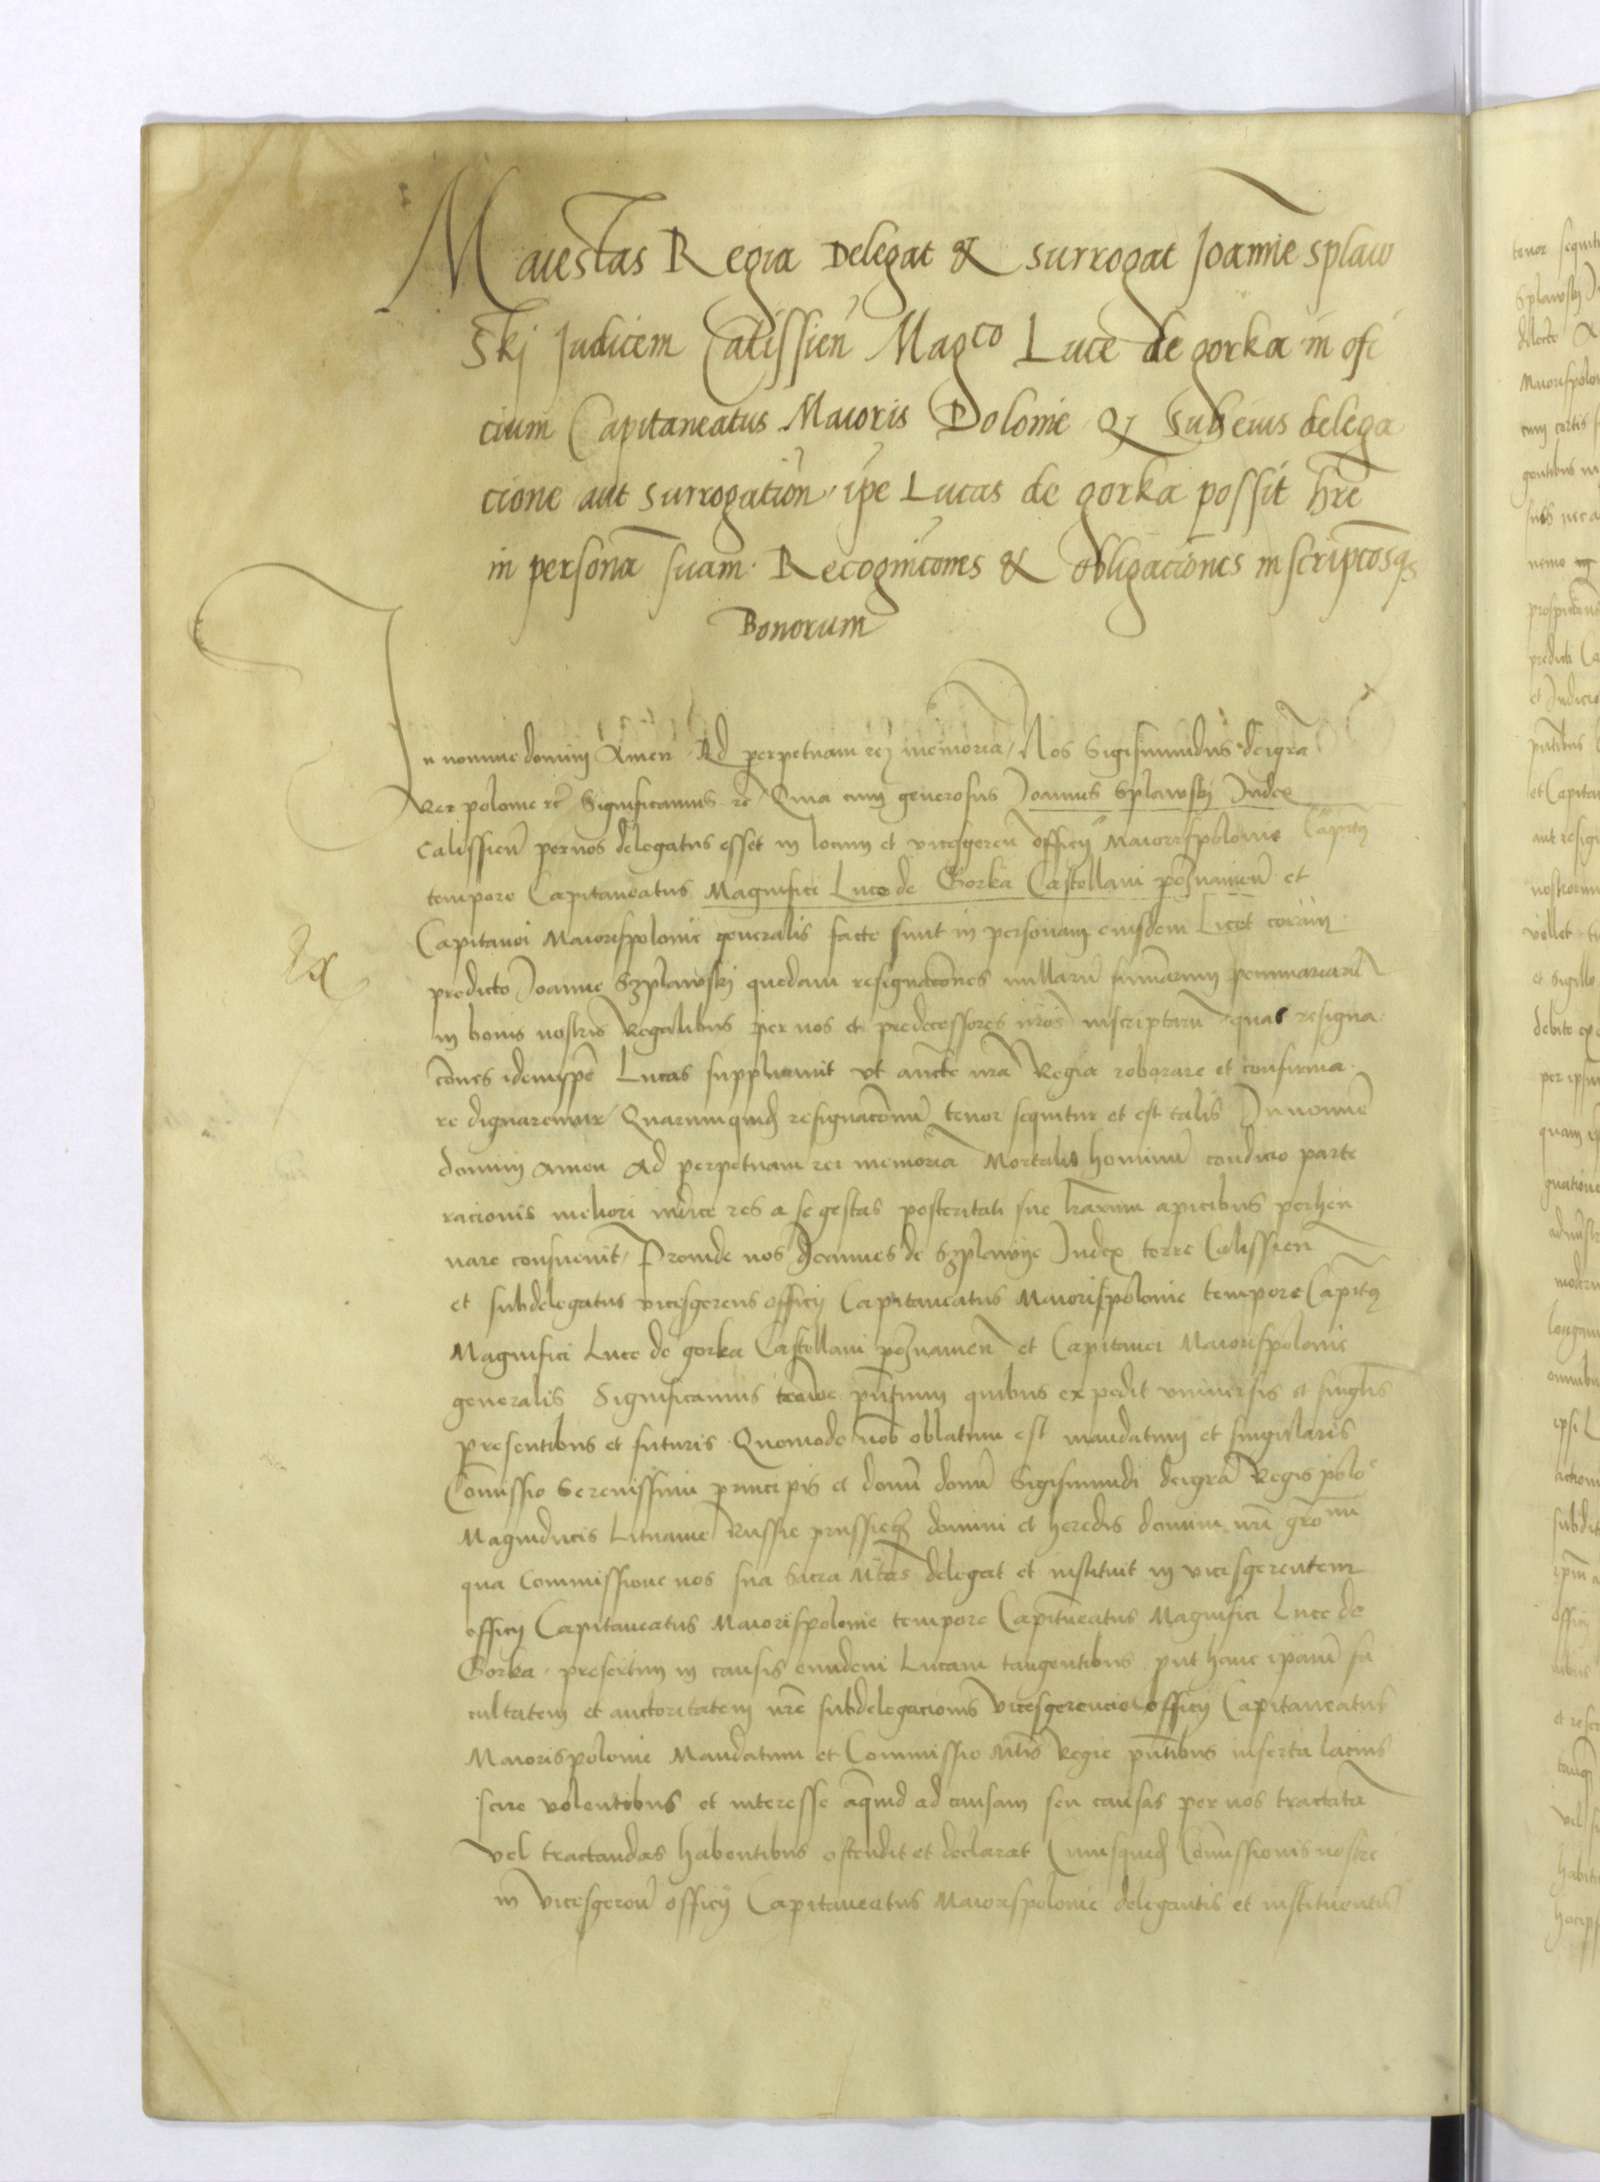 Maiestas Regia Delegat & surrogat Joannē splaw
skj Judicem Calissień Magco Luce de gorka in ofi
cium Capitaneatus Maioris Polonie & sub eius delega
cione aut surrogatiōn ipe Lucas de gorka possit hr̄e
in personā suam Recognicōnes & obligaciōnes inscriptōsqs
Bonorum
In nomine dominj Amen Ad perpetuam rej memoriā Nos Sigismundus dei gr̄a
Rex polonie etc Significamus etc Quia cum generosus Joannes Splawskj Judex
Calissień per nos delegatus esset in locum et vicesgereñ officij Maiorispolonie
tempore Capitaneatus Magnifici Luce de Gorka Castellani pozⁿanień et
Capitanei Maiorispolonie generalis facte sunt in personam eiusdem Licet coram
predicto Joanne Szplawskj quedam resignacōnes nullarū summarum pecuniariarū
in bonis nostris Regalibus per nos et predecessores nr̄os inscriptarū quas resigna
cōnes idem ipse Lucas supplicauit vt aucte nr̄a Regia roborare et confirma
re dignaremur Quarumquidē resignacōnum tenor sequitur et est talis In nomine
dominj amen Ad perpetuam rei memoriā Mortalis hominū condicio parte
racionis meliori res a se gestas posteritati sue lr̄arum apicibus perhen
nare consueuit Proinde nos Joannes de Szplawye Judex terre Calissień
et subdelegatus vicesgerens officij Capitaneatus Maiorispolonie tempore Capitⁿ
Magnifici Luce de gorka Castellani pozⁿanień et Capitanei Maiorispolonie
generalis Significamus tenore pn̄tium quibus expedit vniuersis et singlis
presentibus et futuris Quomodo nob oblatum est mandatum et singularis
Com̄issio Serenissimi principis et domī domī Sigismundi dei gr̄a Regis polo
Magniducis Lituanie Russie prussieqȝ domini et heredis domini nr̄i gr̄omi
qua Commissione nos sua Sacra Mtas delegat et instituit in vicesgerentem
officij Capitaneatus Maiorispolonie tempore Capitⁿeatus Magnifici Luce de
Gorka presertim in causis eundem Lucam tangentibus put hanc ipam fa
cultatem et auctoritatem nr̄e subdelegacionis vicesgerencie officij Capitaneatus
Maiorispolonie Mandatum et Commissio Mtis Regie pn̄tibus inserta lacius
scire volentibus et interesse aliquid ad causam seu causas per nos tractatā
vel tractandas habentibus ostendit et declarat Cuiusquidē Com̄issionis nostre
in vicesgereñ officij Capitaneatus Maiorispolonie delegantis et instituentis